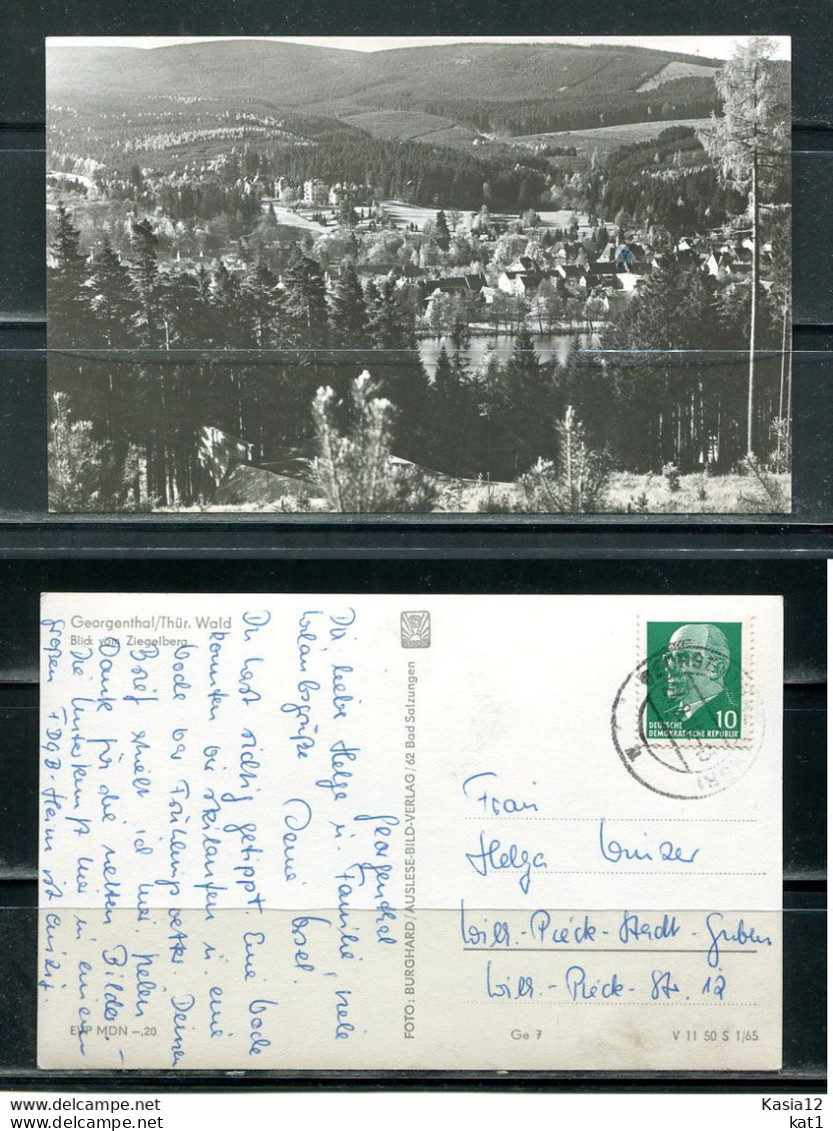 Georgenthal/Thür. Wald
Blick vom Ziegelberg
Georgenthal
Du liebe Helga u. Familie, viele
Urlaubsgrüße Deine
Du hast richtig getippt. Eine Woche
konnten wir skilaufen u. eine
Woche war Frühlingswetter. Deinen
Brief erhielt ich hier, vielen
Dank für die netten Bilder. –
Die Unterkunft hier in einem
großen FDGB-Heim ist
EVP MDN –,20
FOTO: BURGHARD/AUSLESE-BILD-VERLAG/62 Bad Salzungen
10
DEUTSCHE
DEMOKRATISCHE REPUBLIK
Frau
Helga
Wilh.-Pieck-Stadt-Guben
Wilh.-Pieck-Str. 12
Ge 7
V 11 50 S 1/65
Kasia12
kat1